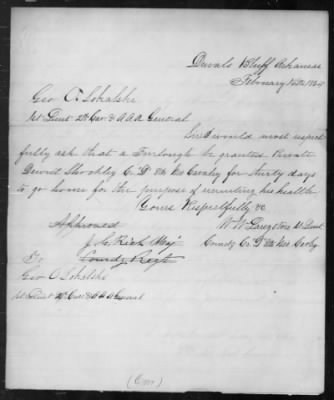 Duvals Bluff Arkansas
February 16th 1864
Geo O. Sokalski
1st Lieut 2d Cav & A A A General
Sir I would most respect
fully ask that a Furlough be granted Private
Dewitt Shockley Co. "D" 8th Mo Cavalry for thirty days
to go home for the purpose of recruiting his health
Yours Respectfully &c
W W Langston 1st Lieut
Comdg Co. D 8th Mo Cavlry
Approved
J. G. Rich Maj
Comdg Regt
To
Geo O. Sokalski
1st Lieut 2d Cav & A A A General